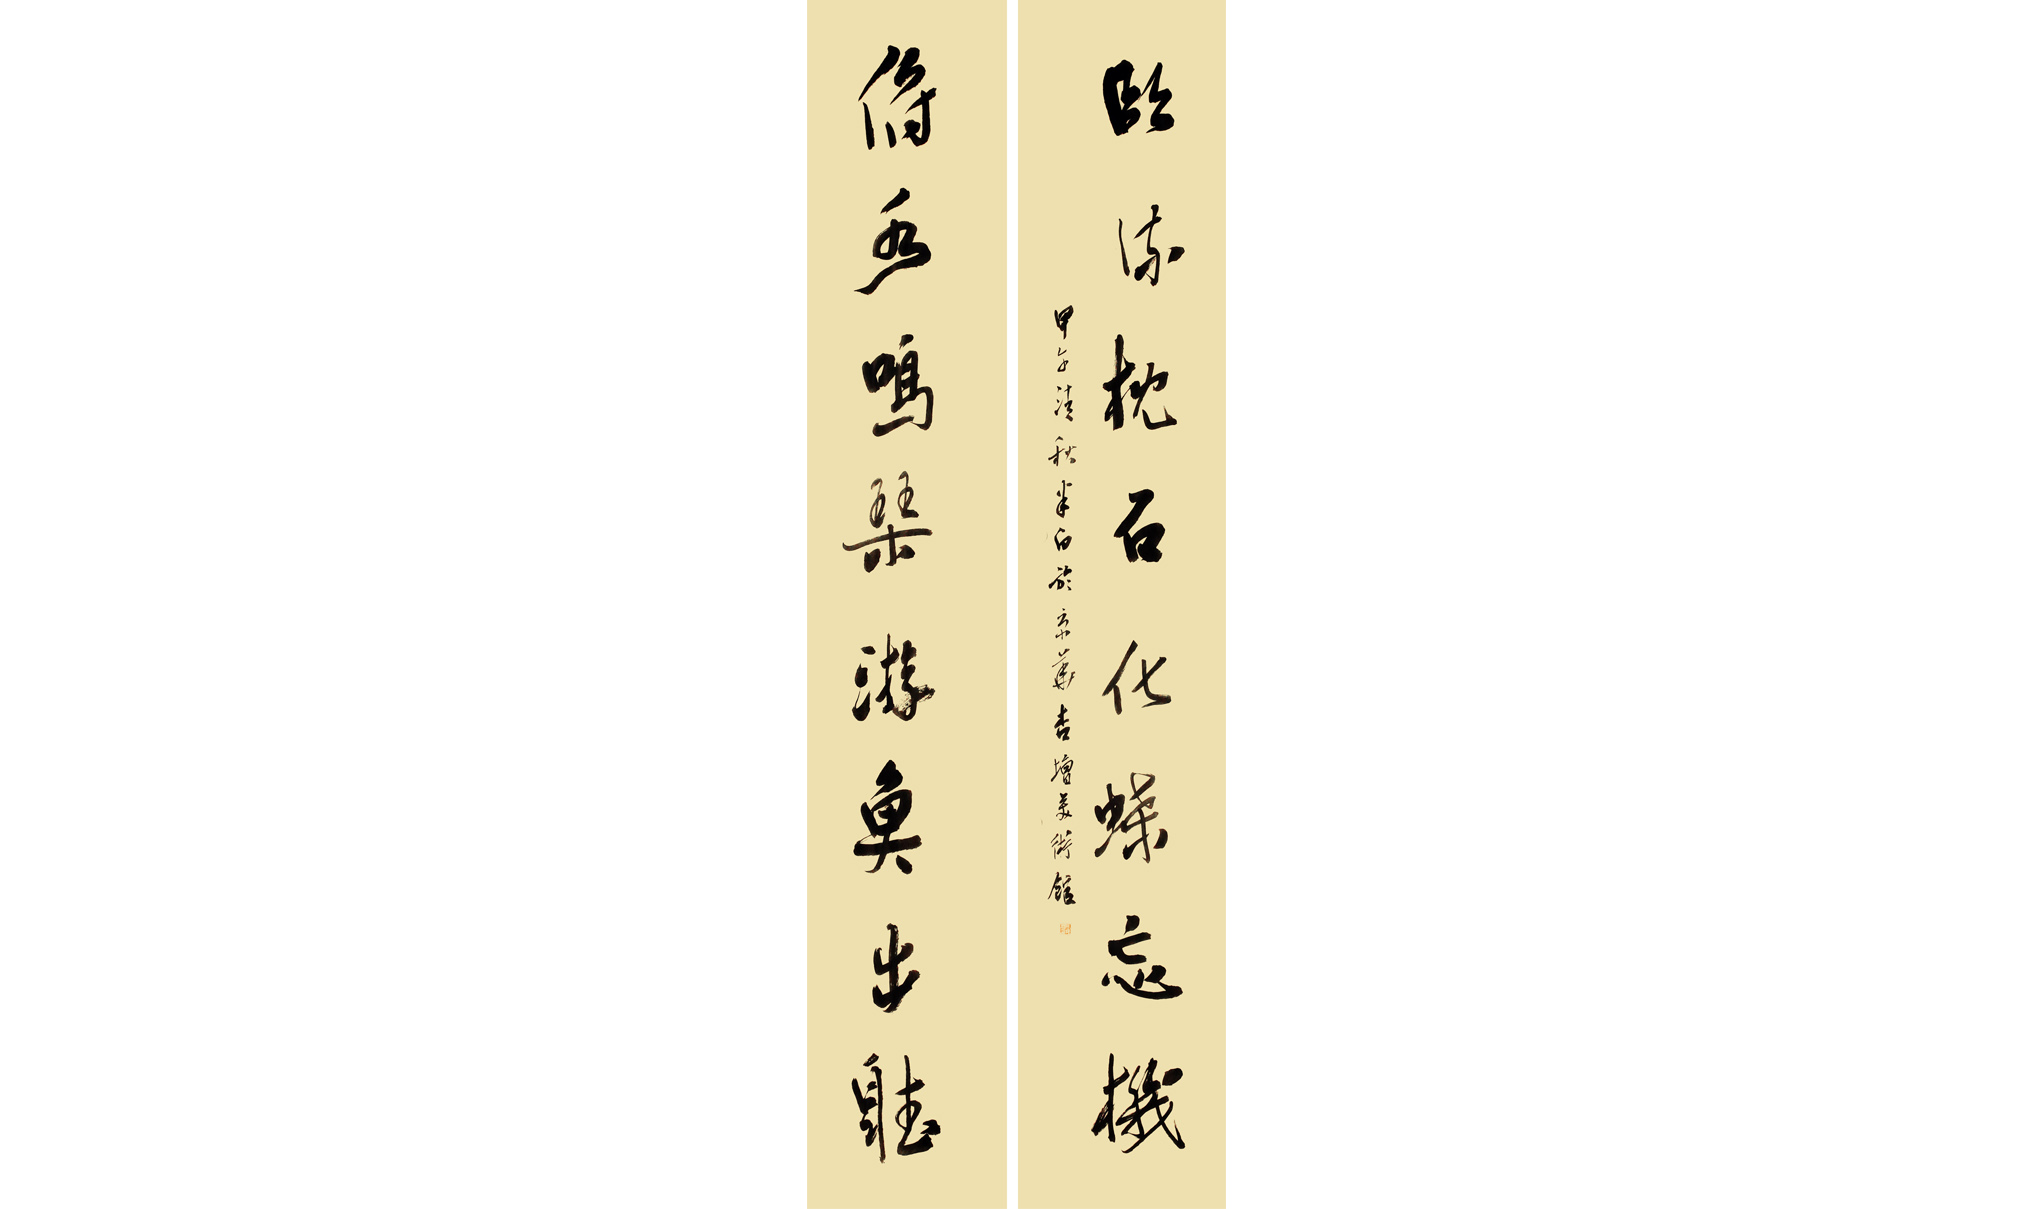 臨流枕石化蝶忘機
甲午清秋半白於京華杏壇美術館
倚委鳴琹游魚出聽